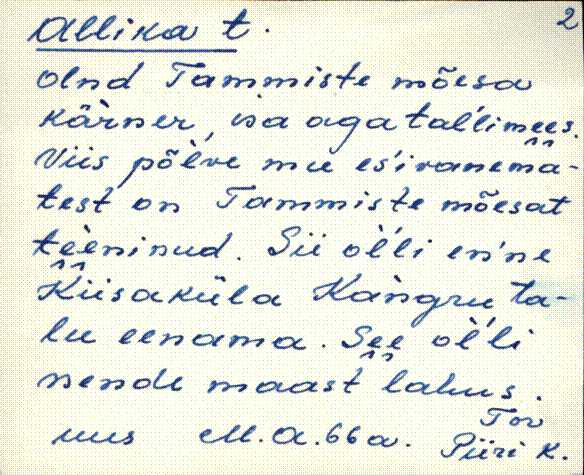 2
Allika t.
olnd Tammiste mõesa
kàrner, isa aga tal'limees.
Viis põlve mu es'ivanema-
test on Tammiste mõesat
tèèninud. Sii òl'li en'ne
Kiisaküla Kàngru ta-
lu eenama. See òl'li
nende maast lahus.
Tor
uus M.A. 66a. Piiri k.